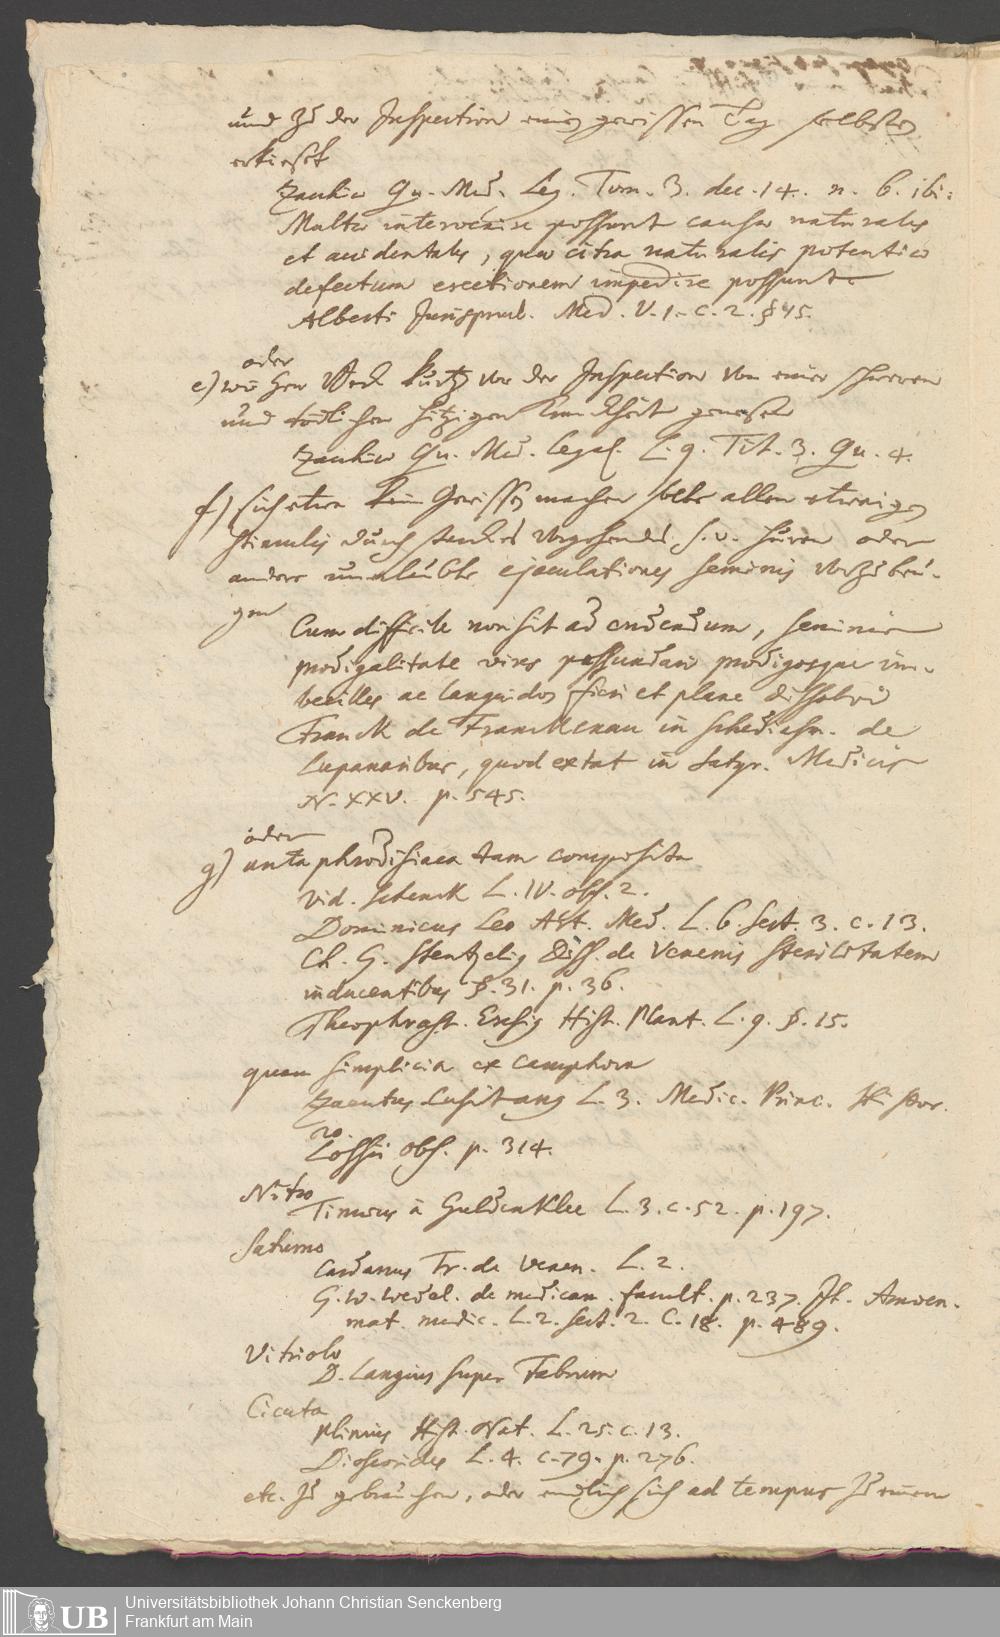 und zu der Inspection einen gewissen Tag selbsten
erkieset
Zachiae Qu. Med. Leg. Tom. 3. dec. 14. n. 6. ibi:
Multae intervenire possunt causae naturales
et accidentales, quae citra naturalis potentiae
defectum erectionem impedire possunt.
Alberti Jurisprud. Med. V. 1. c. 2. § 45.
oder
e) wer kurtz vor der Inspection von einer schweren
und tödlichen hitzigen Kranckheit genesen
Zachiae Qu. Med. legal. L. 9. Tit. 3. Qu. 4.
f) sich etwa kein Gewissen machen solte allen etwanigen
stimulis durch vorgehendes s. v. huren oder
andere unerlaubte ejaculationes seminis vorzubeu-
gen
Cum difficile non sit ad credendum, seminis
prodigalitate vires pessundari prodigosque im-
becilles ac languidos fieri et plane dissolvi
Franck de Franckenau in schediasm. de
Lupanaribus, quod extat in Satyr. Medicis
N. XXV. p. 545.
oder
g) antaphrodisiaca tam composita
vid. Schenck L. IV. obs. 2.
Dominicus Leo Art. Med. L. 6. Sect. 3. c. 13.
Ch. G. Stentzelig Diss. de Venenis sterilitatem
inducentibus §. 31. p. 36.
Theophrast. Eresig Hist. Plant. L. 9. §. 15.
quam simplicia ex camphora
Zacutus Lusitang L. 3. Medic. Princ. Histor.
20.
Lossii obs. p. 314.
Nitro
Timaeus à Guldenklee L. 3. c. 52. p. 197.
Saturno
Cardanus Tr. de Venen. L. 2.
G. W. Wedel. de medicam. facult. p. 237. It. Amoen.
mat. medic. L. 2. Sect. 2. C. 18. p. 489.
Vitriolo
D. Langius super Fabrum
Cicuta
Plinius Hist. Nat. L. 25. c. 13.
Dioscorides L. 4. c. 79. p. 276.
etc. zu gebrauchen, oder endlich sich ad tempus zu einem
UB
Universitätsbibliothek Johann Christian Senckenberg
Frankfurt am Main